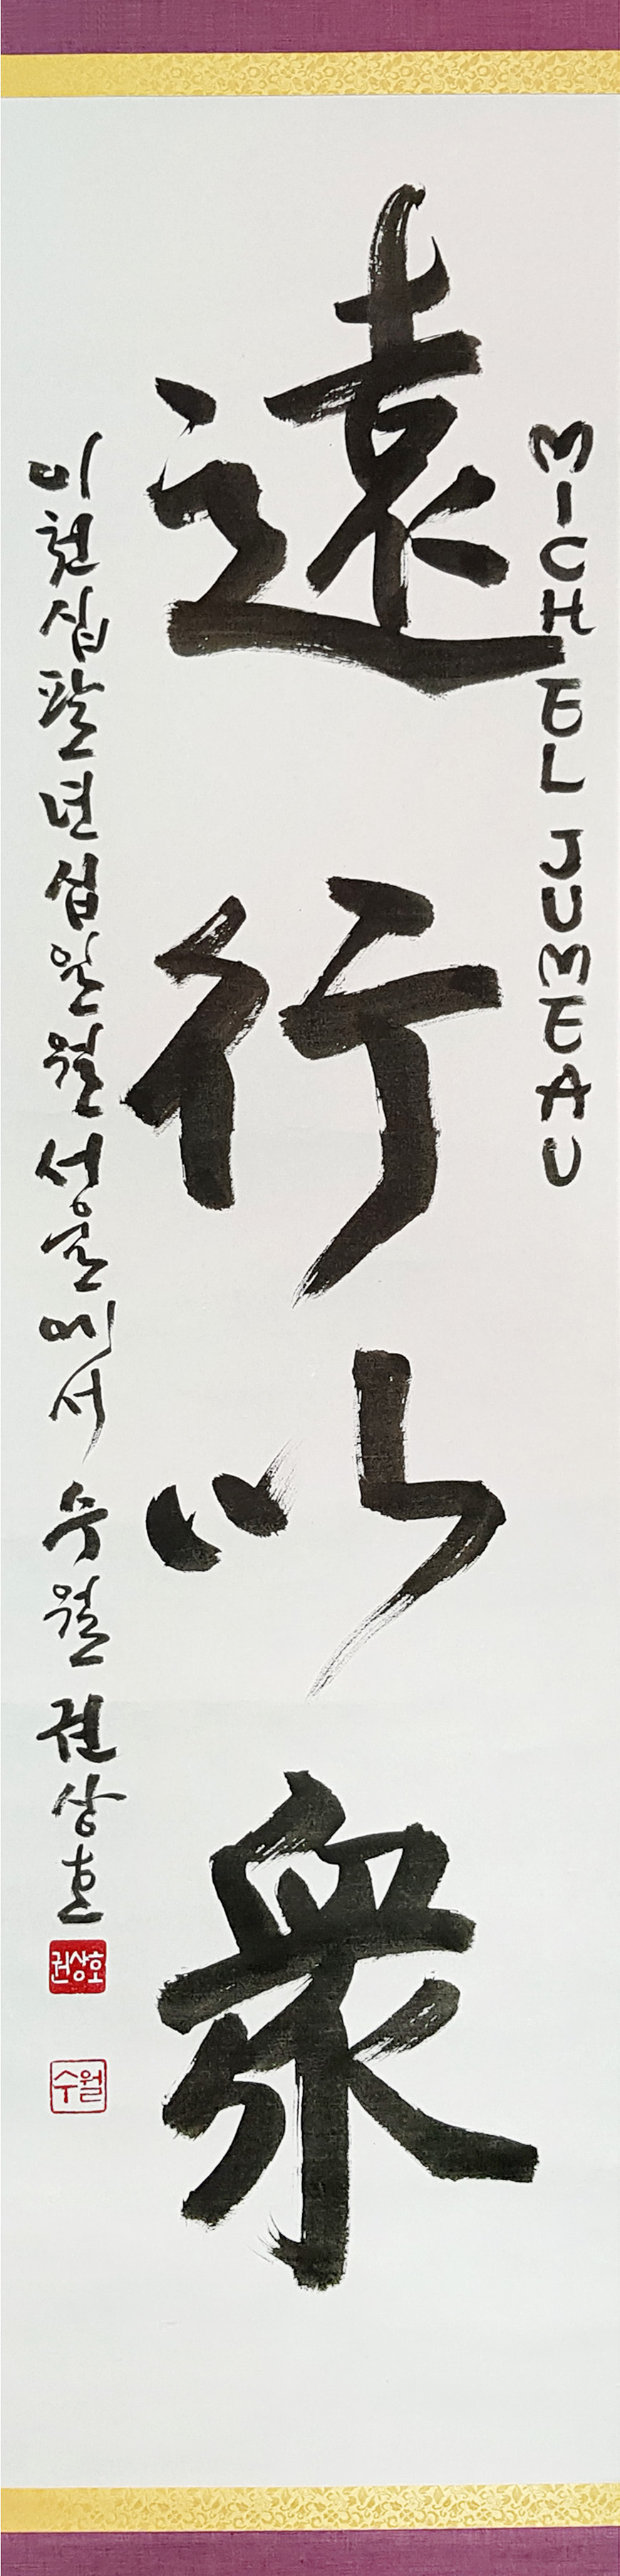 MICHEL JUMEAU
遠行以衆
이천십팔년십일월서울에서 수월 권상호
권상호
수월